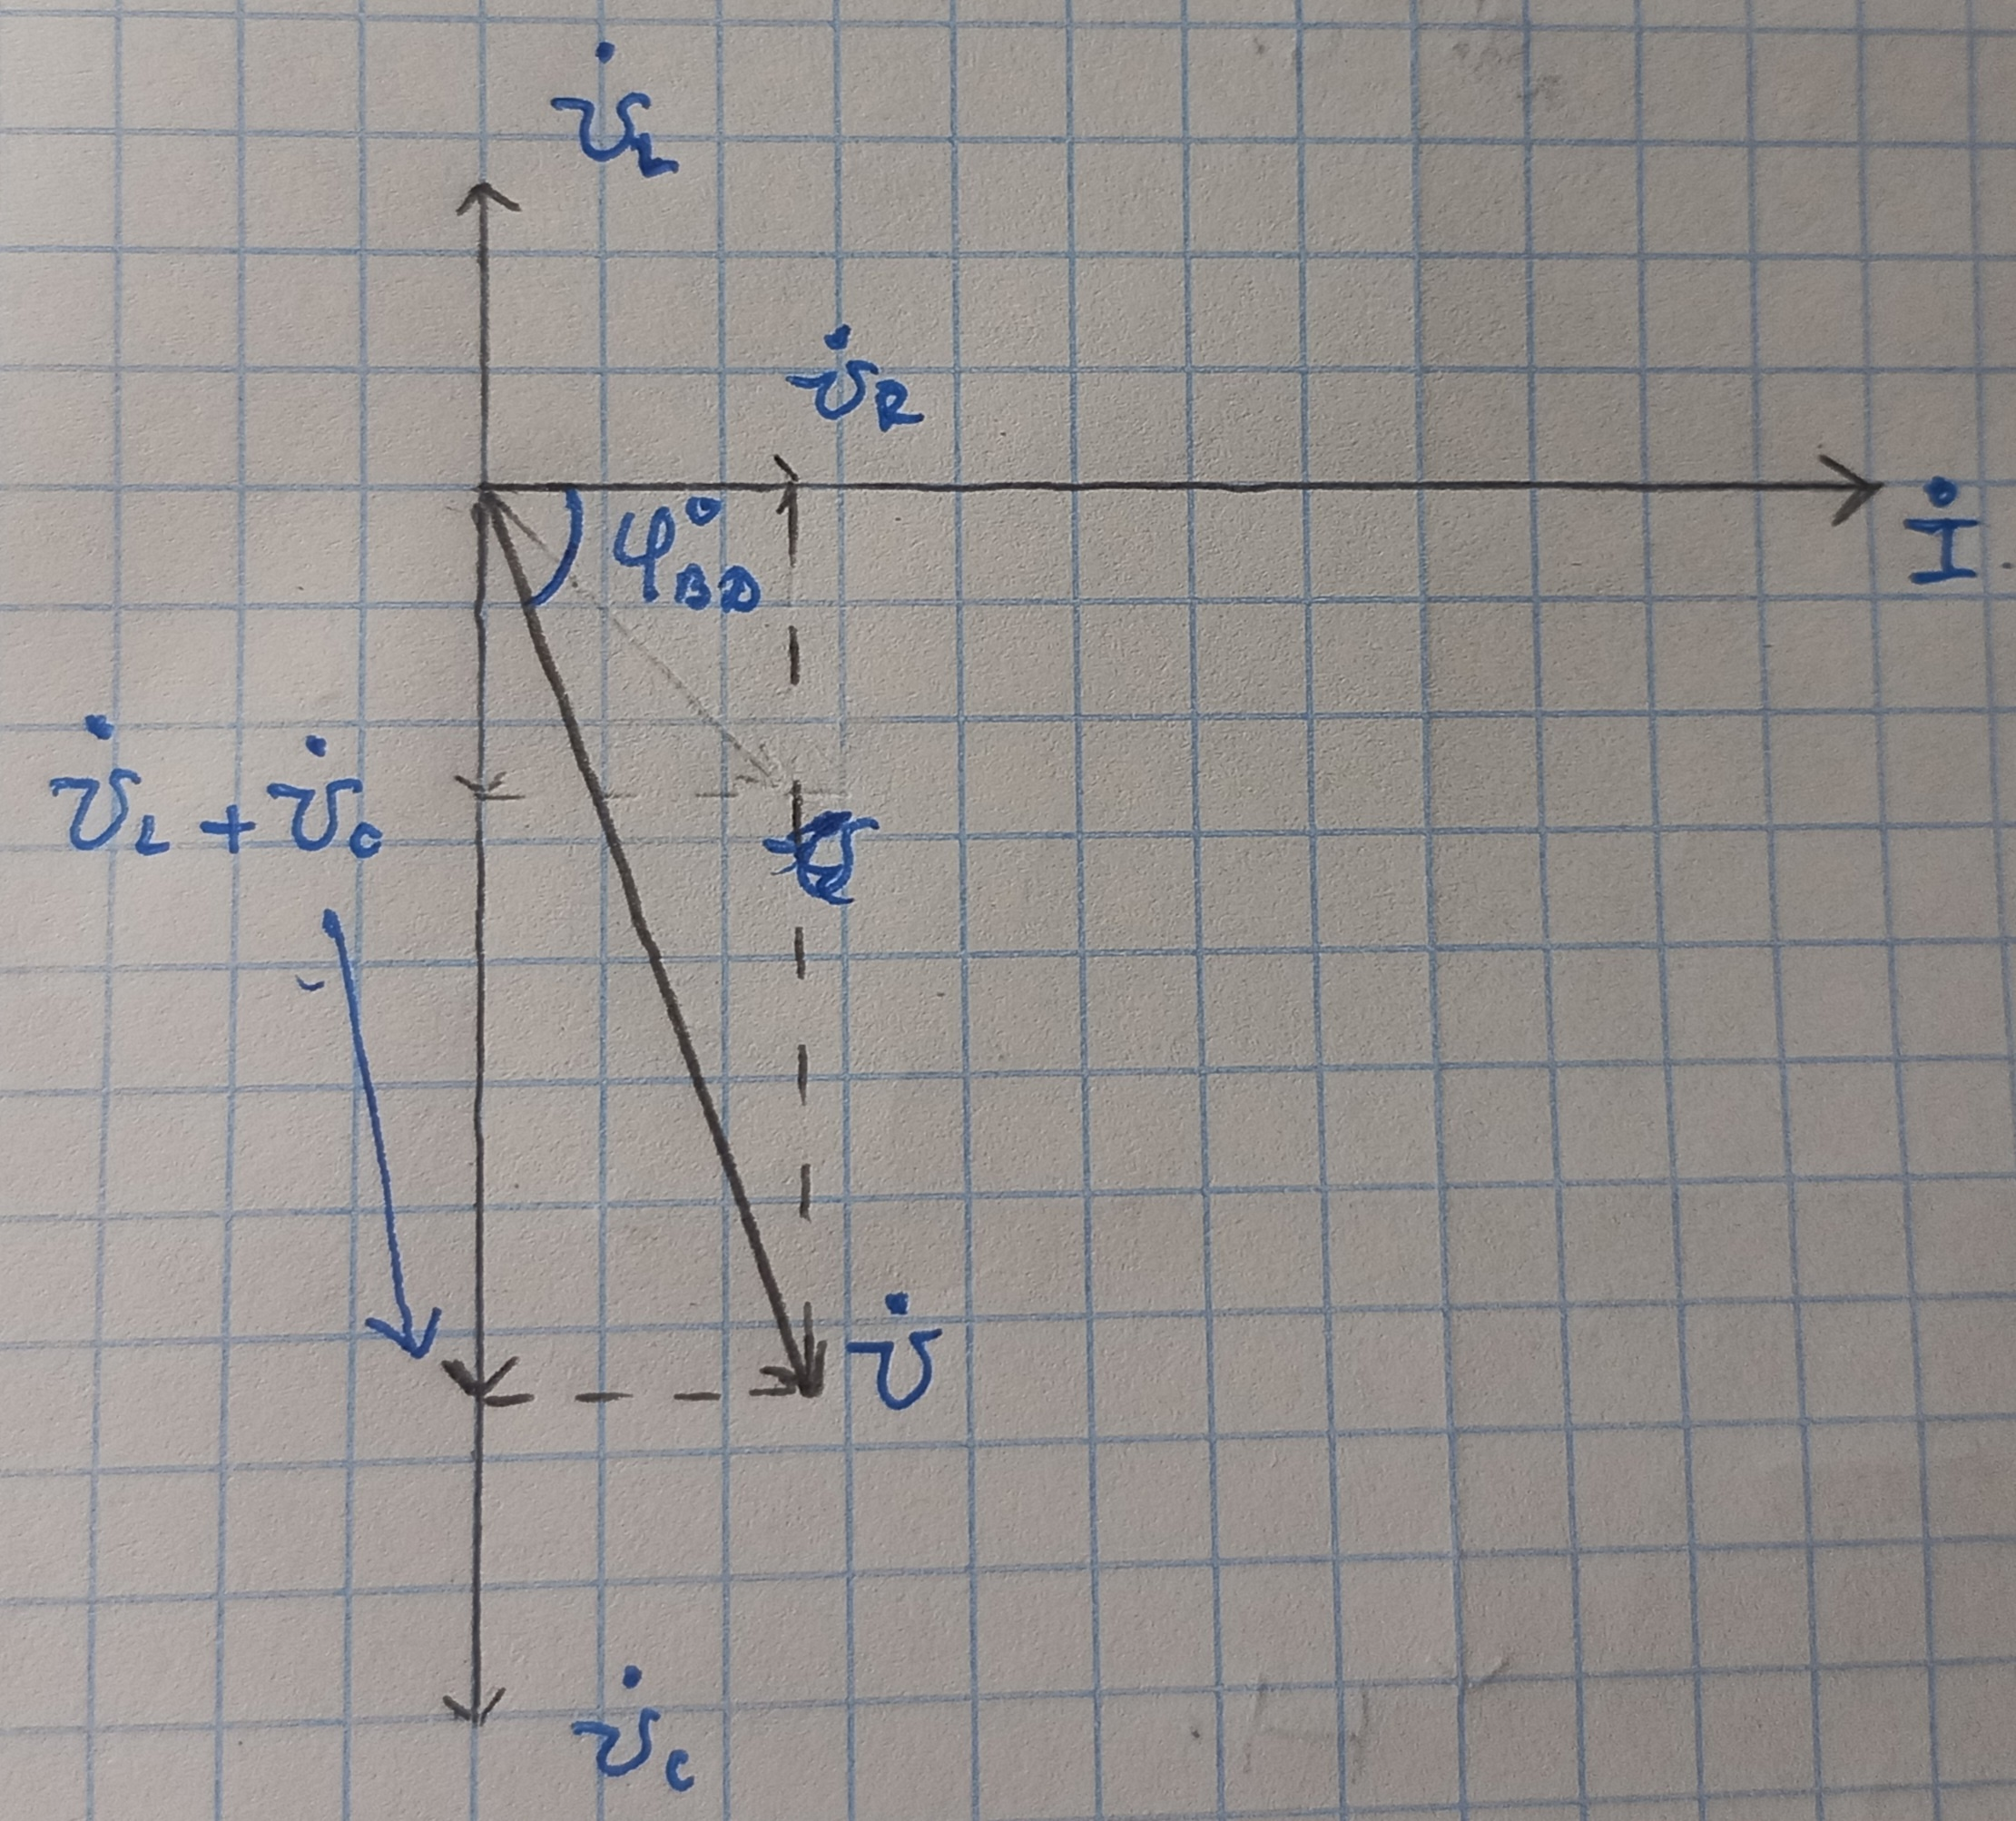 U̇L
U̇R
φ°BD
İ
U̇L + U̇C
U̇
U̇C